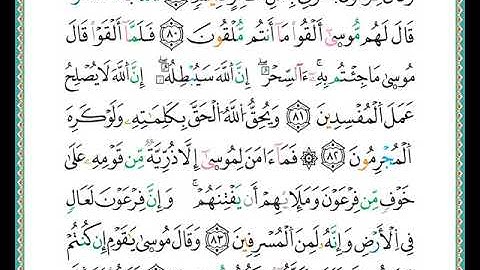 قَالَ لَهُم مُّوسَىٰٓ أَلْقُوا۟ مَآ أَنتُم مُّلْقُونَ ٨٠ فَلَمَّآ أَلْقَوْا۟ قَالَ
مُوسَىٰ مَا جِئْتُم بِهِۦٓ ءَآلسِّحْرُۖ إِنَّ ٱللَّهَ سَيُبْطِلُهُۥٓۖ إِنَّ ٱللَّهَ لَا يُصْلِحُ
عَمَلَ ٱلْمُفْسِدِينَ ٨١ وَيُحِقُّ ٱللَّهُ ٱلْحَقَّ بِكَلِمَٰتِهِۦ وَلَوْ كَرِهَ
ٱلْمُجْرِمُونَ ٨٢ ۞ فَمَآ ءَامَنَ لِمُوسَىٰٓ إِلَّا ذُرِّيَّةٌ مِّن قَوْمِهِۦ عَلَىٰ
خَوْفٍ مِّن فِرْعَوْنَ وَمَلَإِي۟هِمْ أَن يَفْتِنَهُمْۚ وَإِنَّ فِرْعَوْنَ لَعَالٍ
فِى ٱلْأَرْضِ وَإِنَّهُۥ لَمِنَ ٱلْمُسْرِفِينَ ٨٣ وَقَالَ مُوسَىٰ يَٰقَوْمِ إِن كُنتُمْ